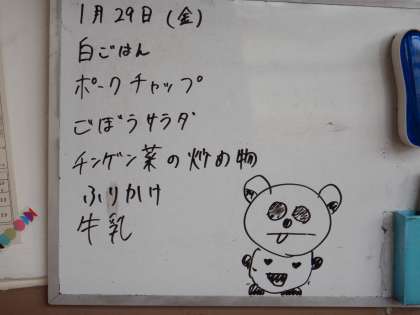 1月29日(金)
白ごはん
ポークチャップ
ごぼうサラダ
チンゲン菜の炒め物
ふりかけ
牛乳